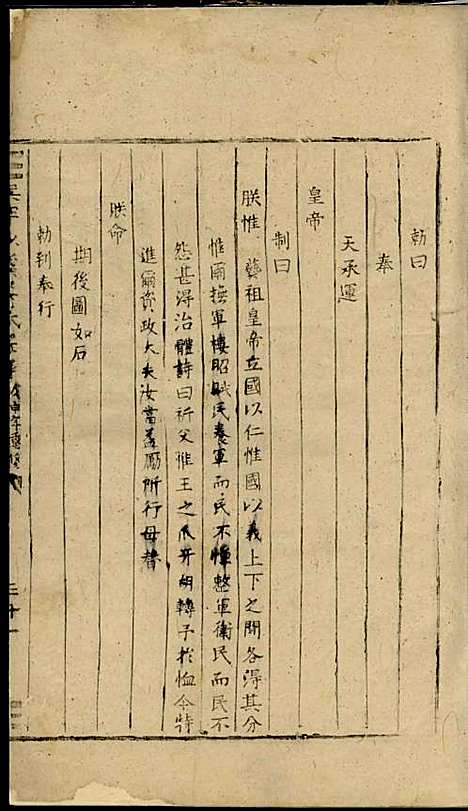 勅曰
奉
天承運
皇帝
制曰
朕惟藝祖皇帝立國以仁惟國以義上下之閒各得其分
惟爾撫軍樓昭賦民養軍而民不憚整軍衛民而民不
怨甚得治體詩曰祈父惟王之爪牙胡轉予於恤今特
進爾資政大夫汝當益勵所行毋替
朕命
期後圖如后
勅到奉行
三十一